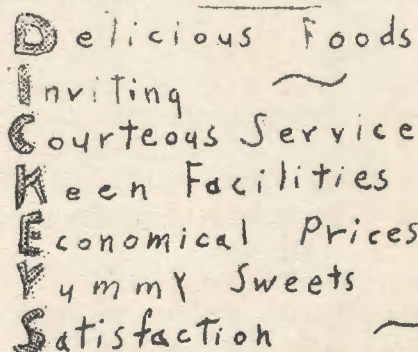 Delicious Foods
Inviting
Courteous Service
Keen Facilities
Economical Prices
Yummy Sweets
Satisfaction